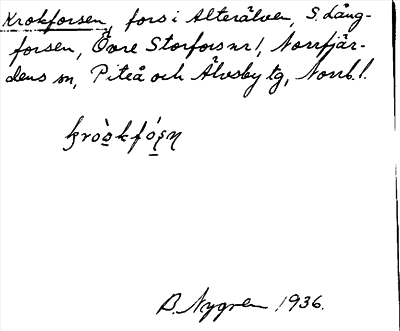 Krokforsen, fors i Alterälven, S. Lång-
forsen, Övre Storfors nr 1, Norrfjär-
dens sn, Piteå och Älvsby tg, Norrb. l.
krò̀o̲kfó̲ʂn̩
B. Nygren 1936.